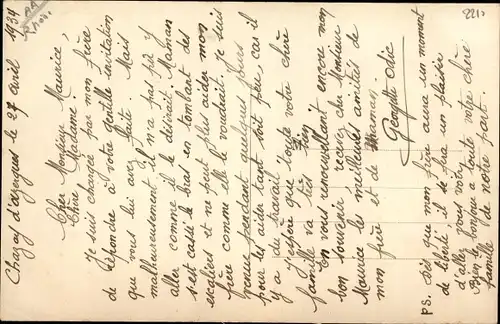 Chazay d'Azergues le 27 avril 1938
Cher Monsieur Maurice,
Chère Madame
Je suis chargée par mon frère
de répondre à votre gentille invitation
que vous lui avez faite. Mais
malheureusement il n'a pas pu y
aller comme il le désirait. Maman
s'est cassé le bras en tombant des
escaliers et ne peut plus aider mon
frère comme elle le voudrait. Je suis
venue pendant quelques jours
pour les aider tant soit peu car il
y a du travail.
J'espère que toute votre chère
famille va très bien.
En vous renouvellant encore mon
bon souvenir recevez cher Monsieur
Maurice les meilleures amitiés de
mon frère et de maman.
Georgette Odic
PS. Dès que mon frère aura un moment
de liberté il se fera un plaisir
d'aller vous voir.
Bien le bonjour a toute votre chère
famille de notre part.
2210